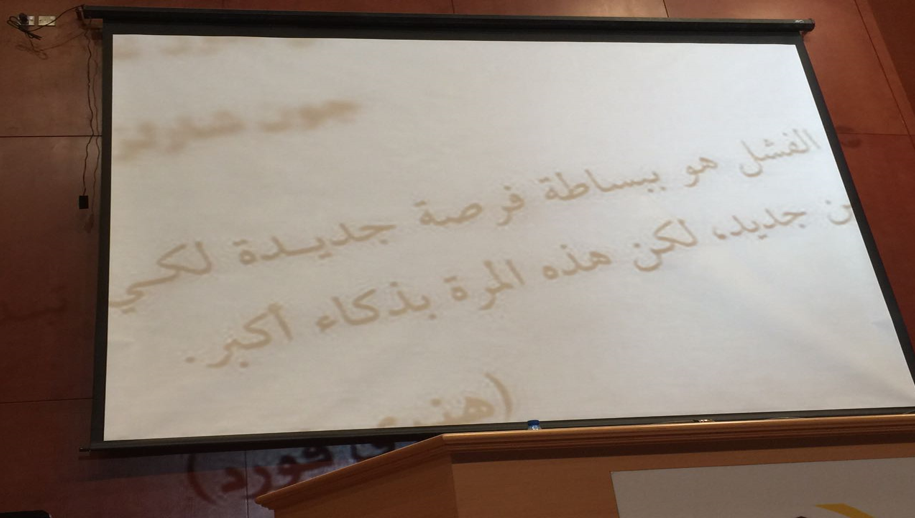 الفشل هو ببساطة فرصة جديدة لكي
من جديد، لكن هذه المرة بذكاء أكبر.
(هنري فورد)